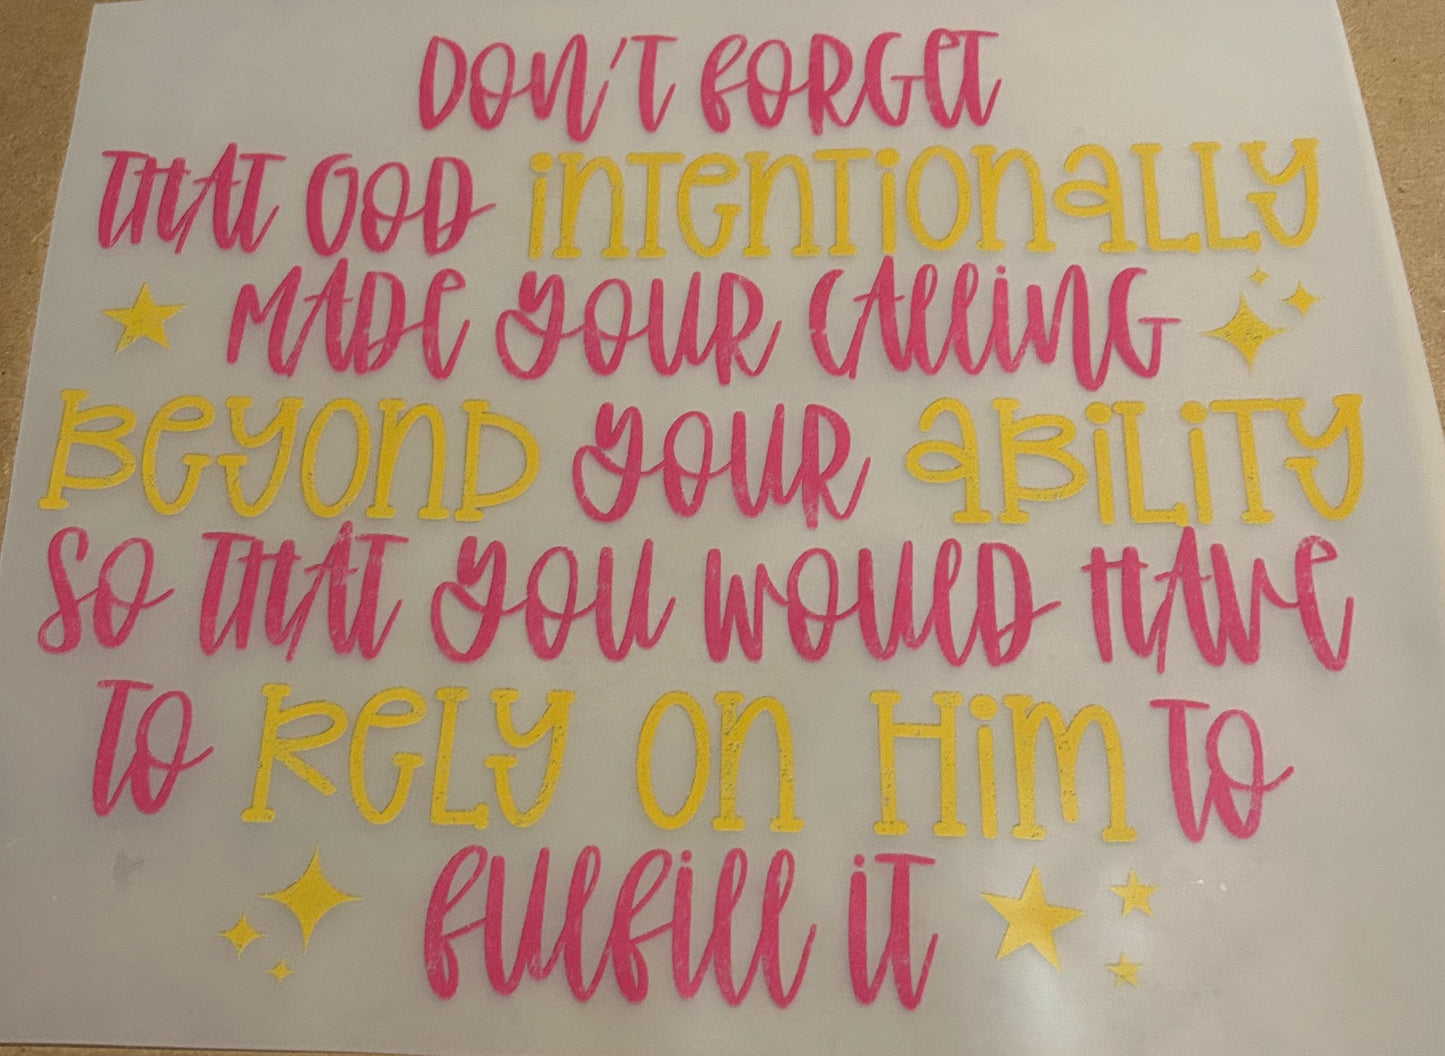 DON'T FORGET
THAT GOD INTENTIONALLY
MADE YOUR CALLING
BEYOND YOUR ABILITY
SO THAT YOU WOULD HAVE
TO RELY ON HIM TO
FULFILL IT